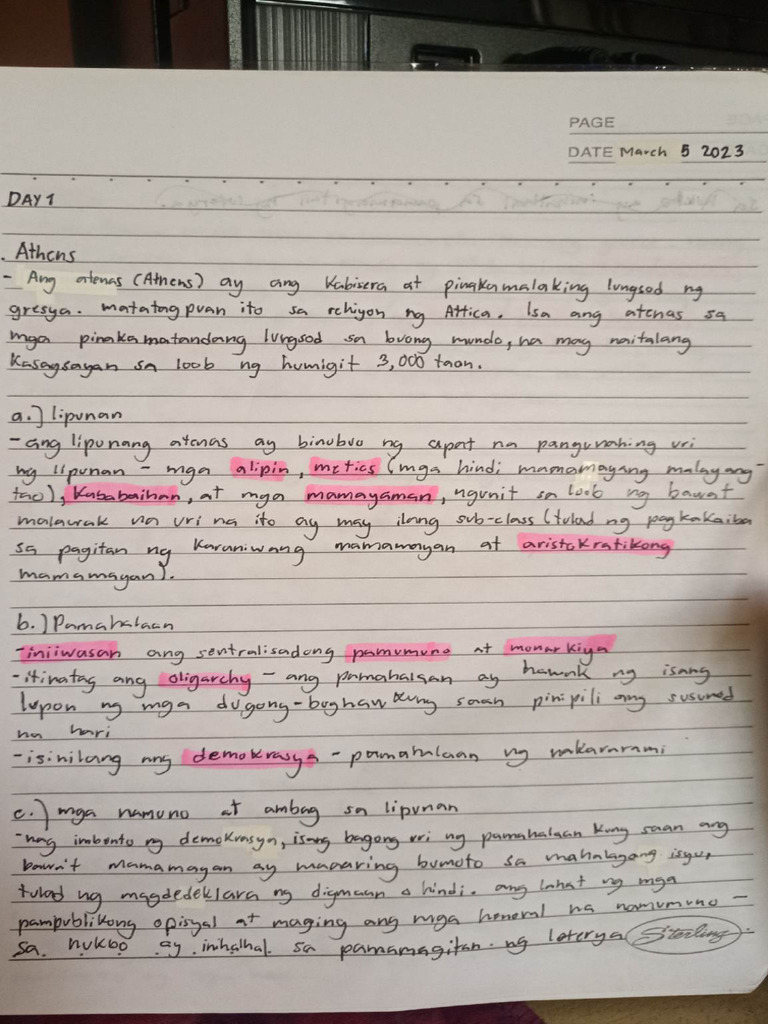 PAGE
DATE March 5 2023
DAY 1
. Athens
- Ang atenas (Athens) ay ang Kabisera at pinakamalaking lungsod ng
gresya. matatagpuan ito sa rehiyon ng Attica. Isa ang atenas sa
mga pinakamatandang lungsod sa buong mundo, na may naitalang
Kasaysayan sa loob ng humigit 3,000 taon.
a.] lipunan
- ang lipunang atenas ay binubuo ng apat na pangunahing uri
ng lipunan - mga alipin, metics (mga hindi mamamayang malayang-
tao), Kababaihan, at mga mamayaman, ngunit sa loob ng bawat
malawak na uri na ito ay may ilang sub-class (tulad ng pagkakaiba
sa pagitan ng Karaniwang mamamayan at aristokratikong
mamamayan).
b.) Pamahalaan
- iniiwasan ang sentralisadong pamumuno at monarkiya
- itinatag ang oligarchy - ang pamahalaan ay hawak ng isang
lupon ng mga dugong-bughaw kung saan pinipili ang susunod
na hari
- isinilang ang demokrasya - pamahalaan ng nakararami
c.) mga namuno at ambag sa lipunan
- nag imbento ng demokrasya, isang bagong uri ng pamahalaan kung saan ang
bawa't mamamayan ay maaaring bumoto sa mahalagang isyu,
tulad ng magdedeklara ng digmaan o hindi. ang lahat ng mga
pampublikong opisyal at maging ang mga heneral na namumuno -
sa hukbo ay inihalhal sa pamamagitan ng loterya Sterling